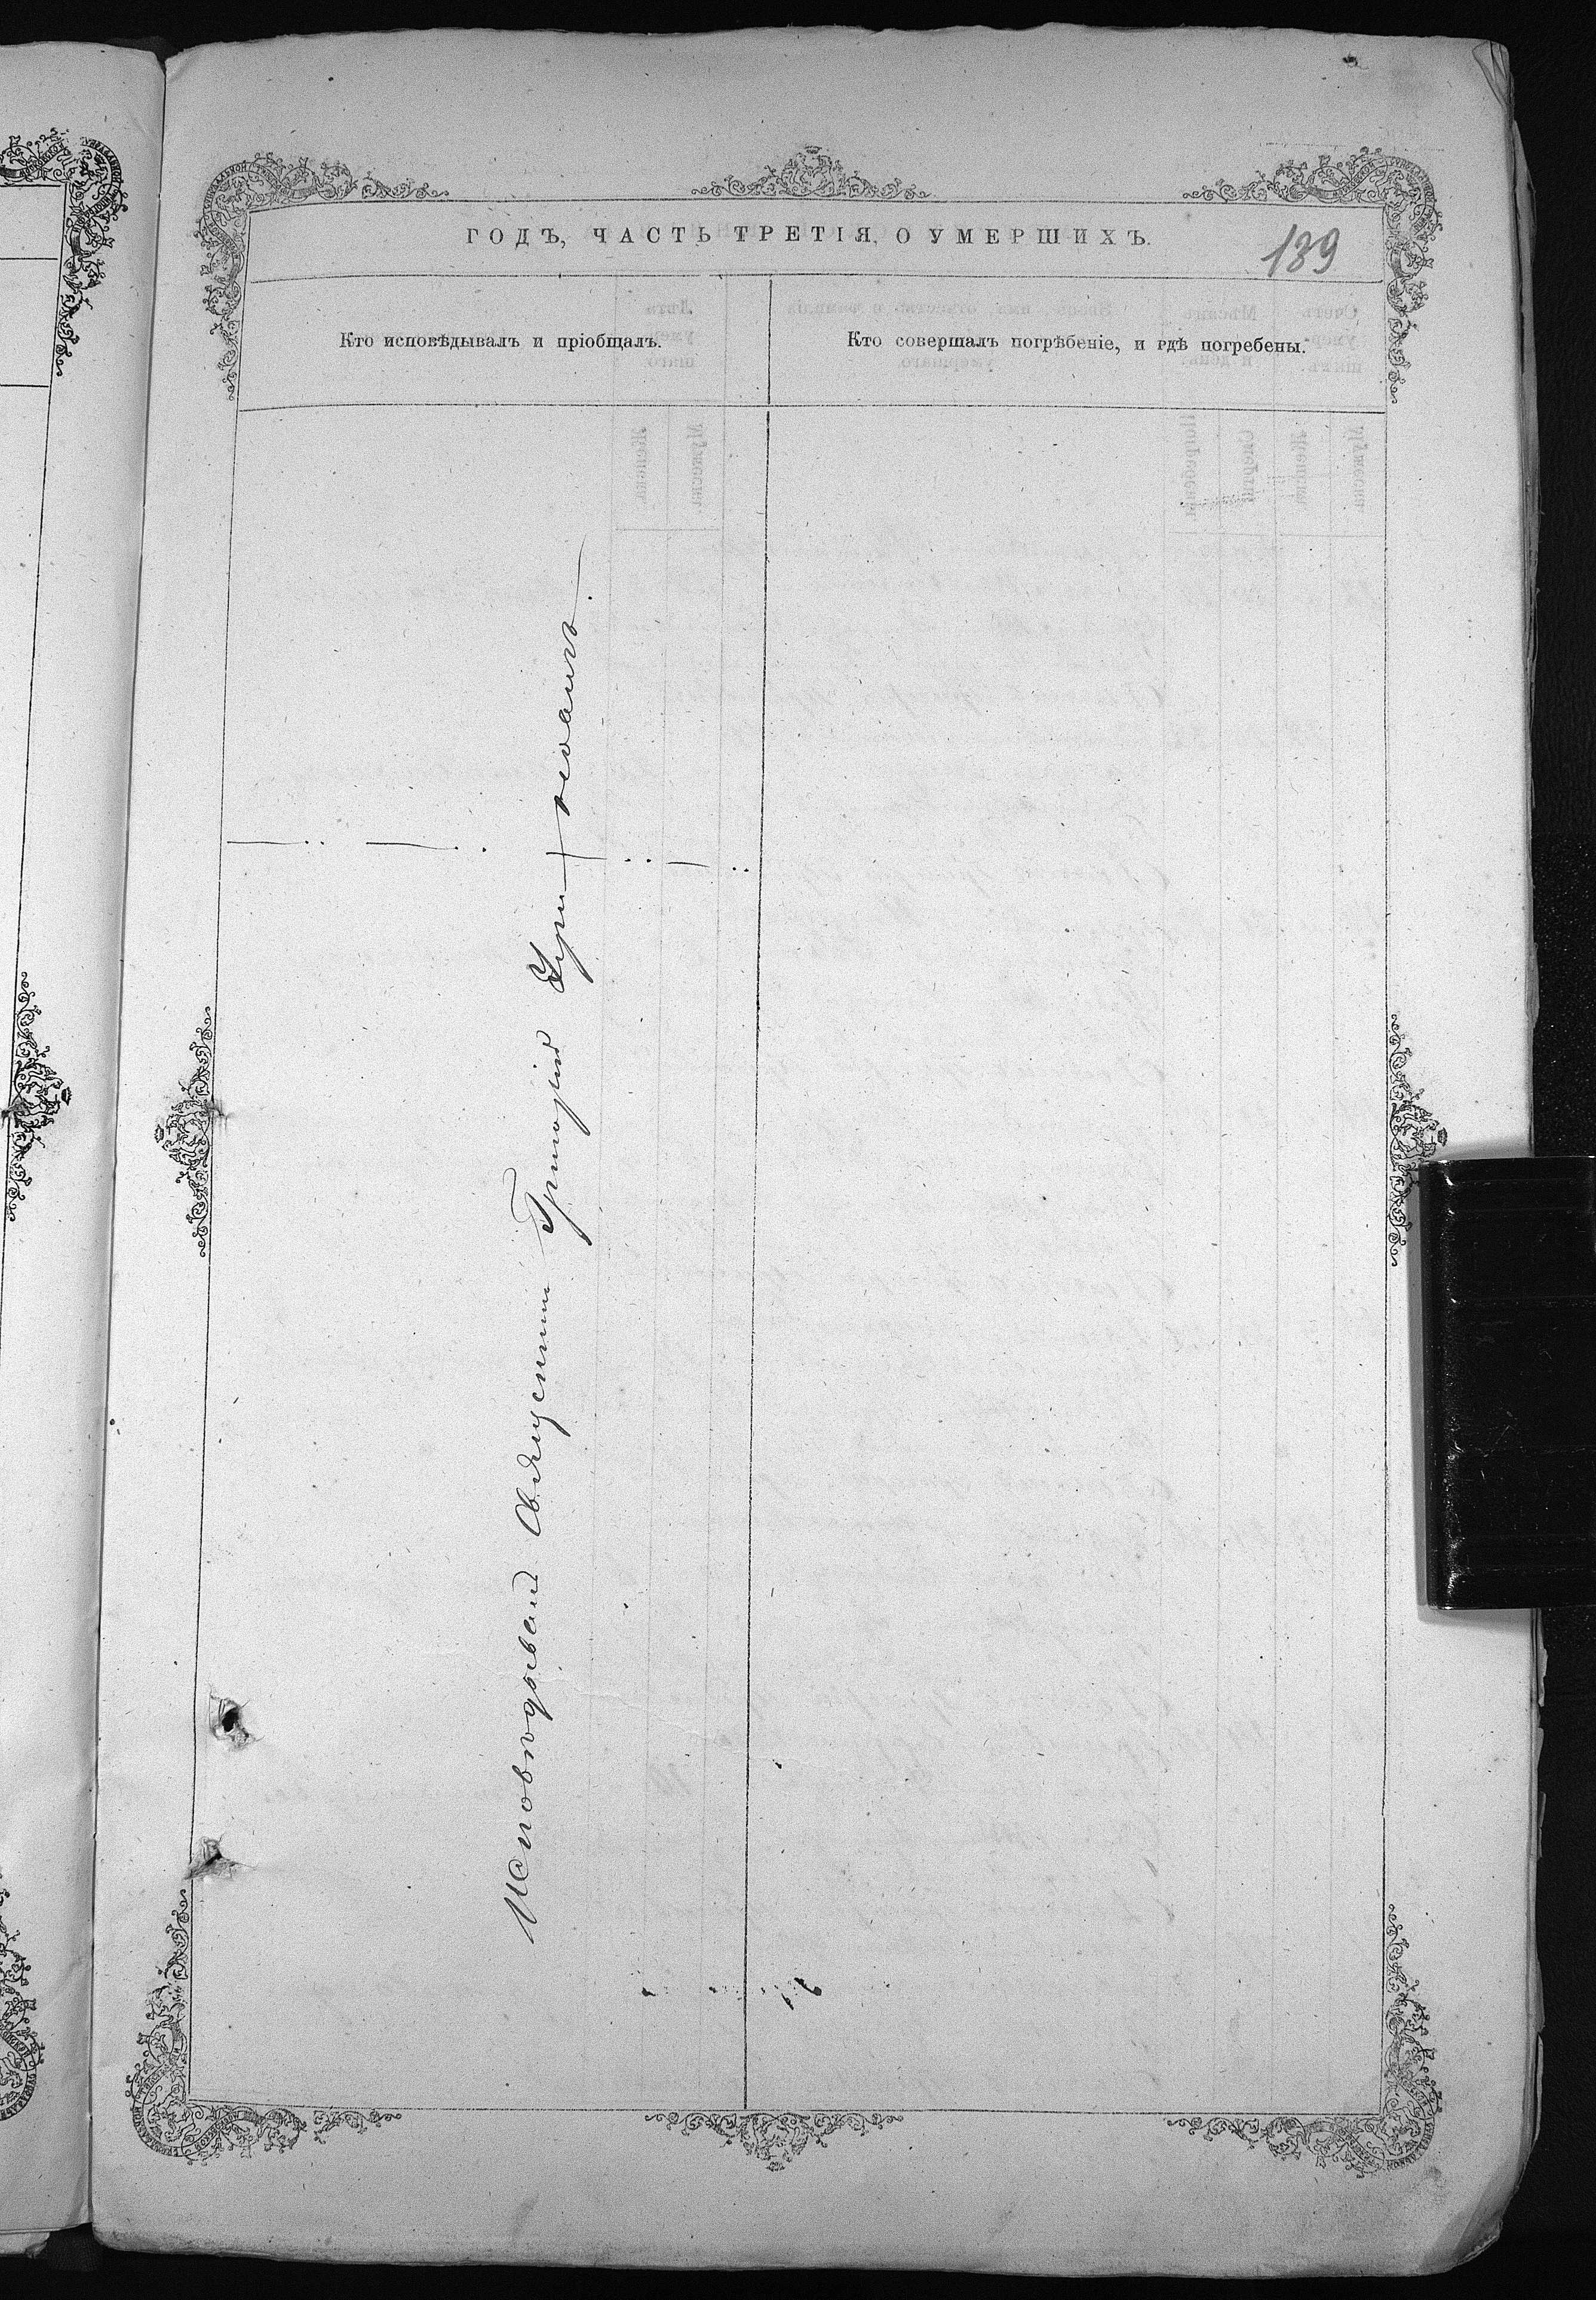 ГОДЪ, ЧАСТЬ ТРЕТІЯ, О УМЕРШИХЪ.
139
Кто исповѣдывалъ и пріобщалъ.
Кто совершалъ погрѣбеніе, и гдѣ погребены.
Исповѣдывалъ Священникъ Григорій